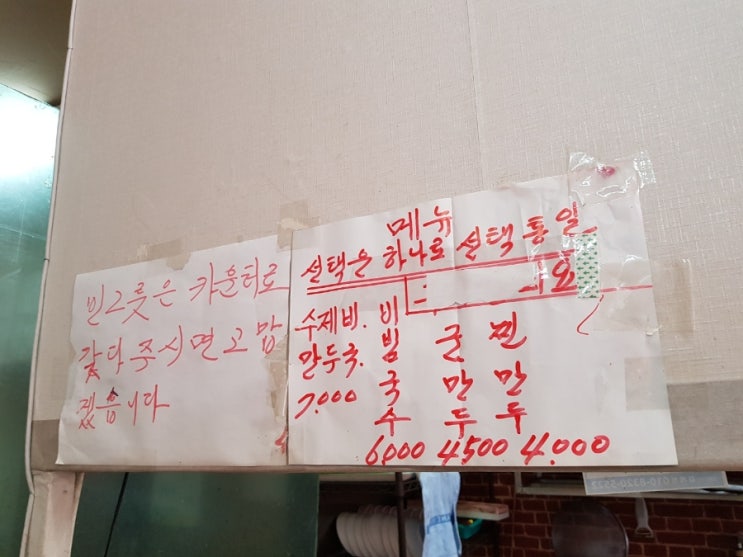 빈그릇은 카운터로
갖다주시면 고맙
겠습니다
메뉴
선택은 하나로 선택 통일
수제비.
만두국.
7.000
비빔국수
6000
군만두
4500
찐만두
4.000